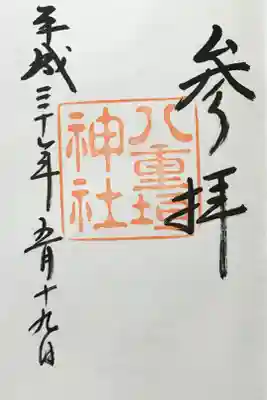 参拝
八重垣
神社
平成三十年 五月十九日